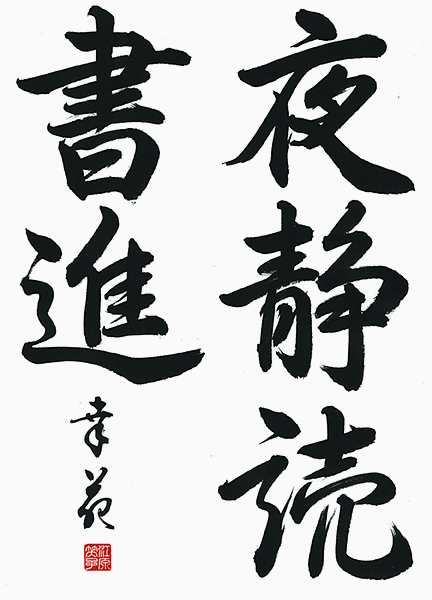 夜静読
書進
幸苑